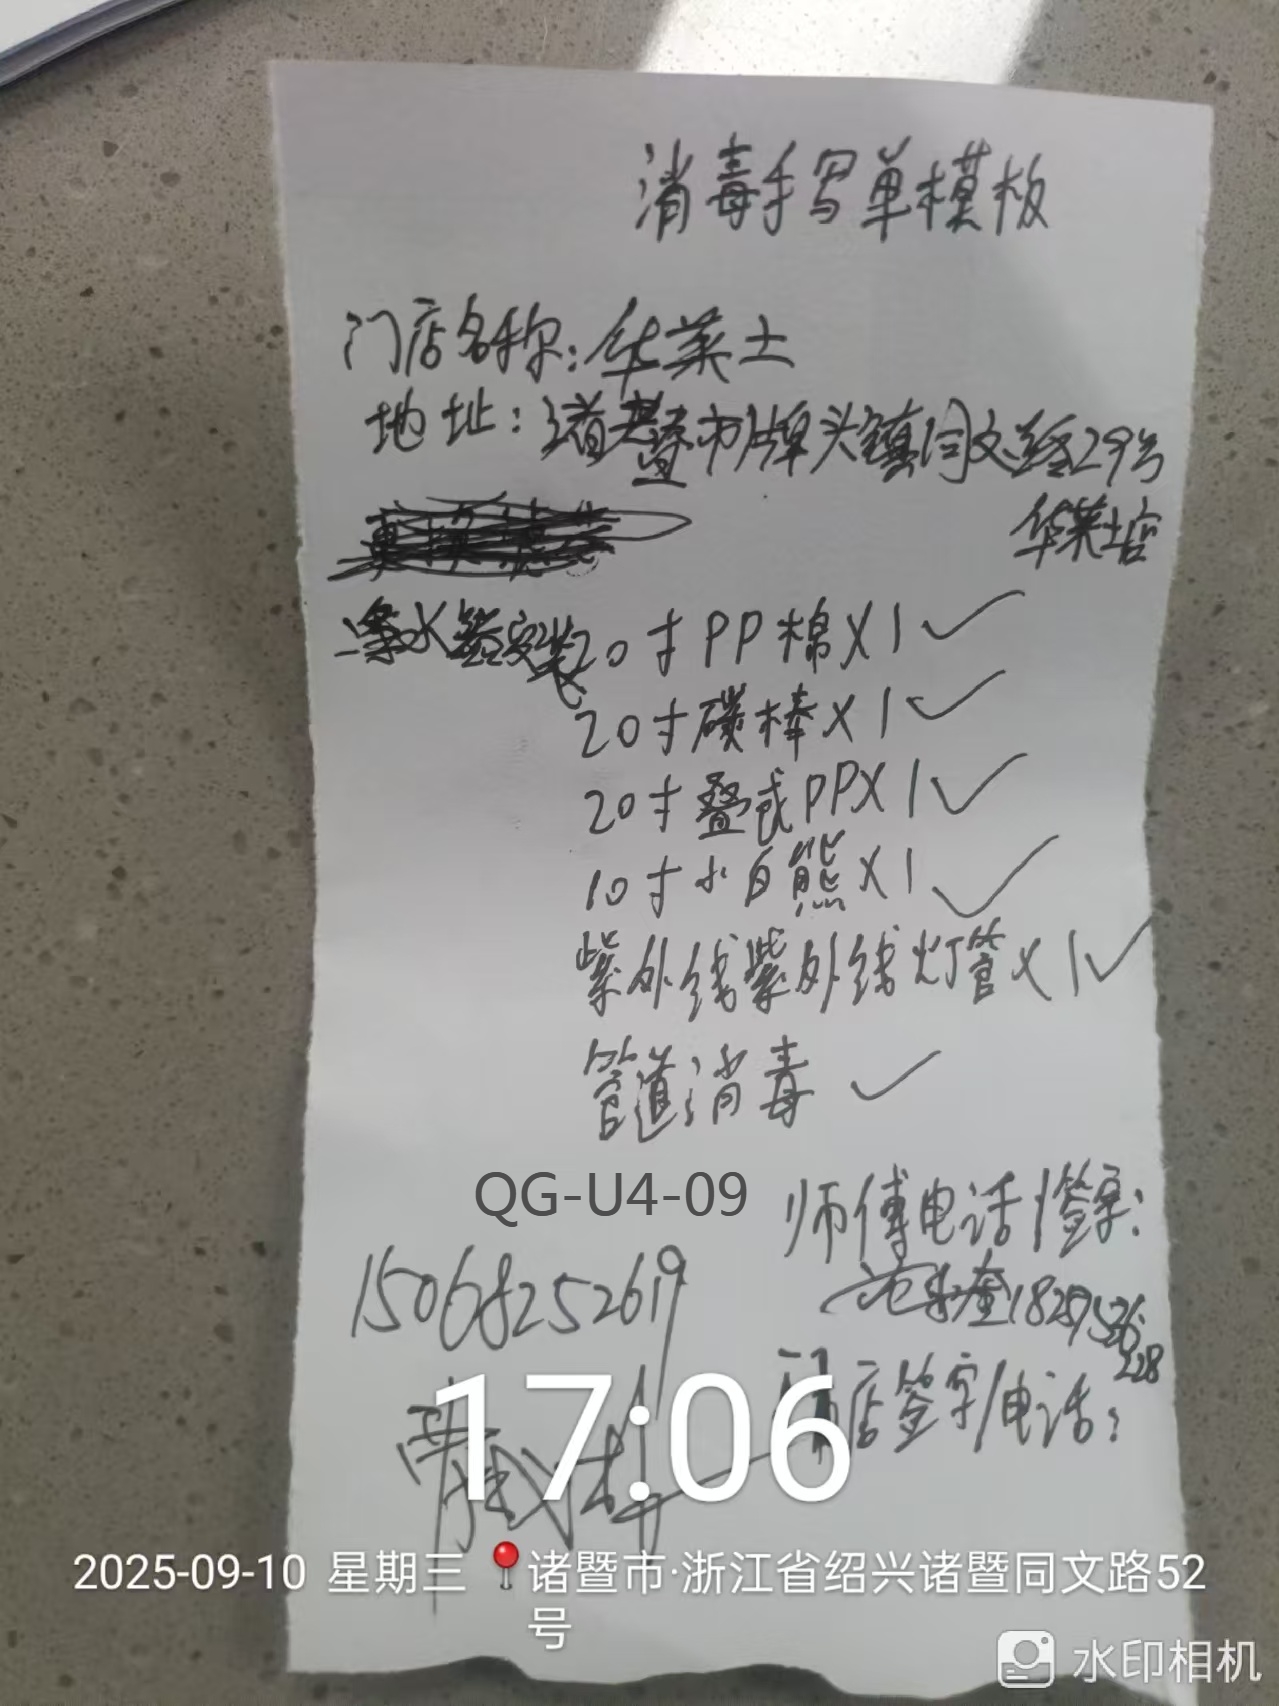 消毒手写单模板
门店名称:华莱士
地址:诸暨市牌头镇同文路29号
华莱士店
净水器安装20寸PP棉X1✓
20寸碳棒X1✓
20寸叠式PPX1✓
10寸小白熊X1✓
紫外线紫外线灯管X1✓
管道消毒✓
QG-U4-09
师傅电话/签字:
18257526228
15068252619
门店签字/电话:
17:06
2025-09-10 星期三 诸暨市·浙江省绍兴诸暨同文路52号
水印相机